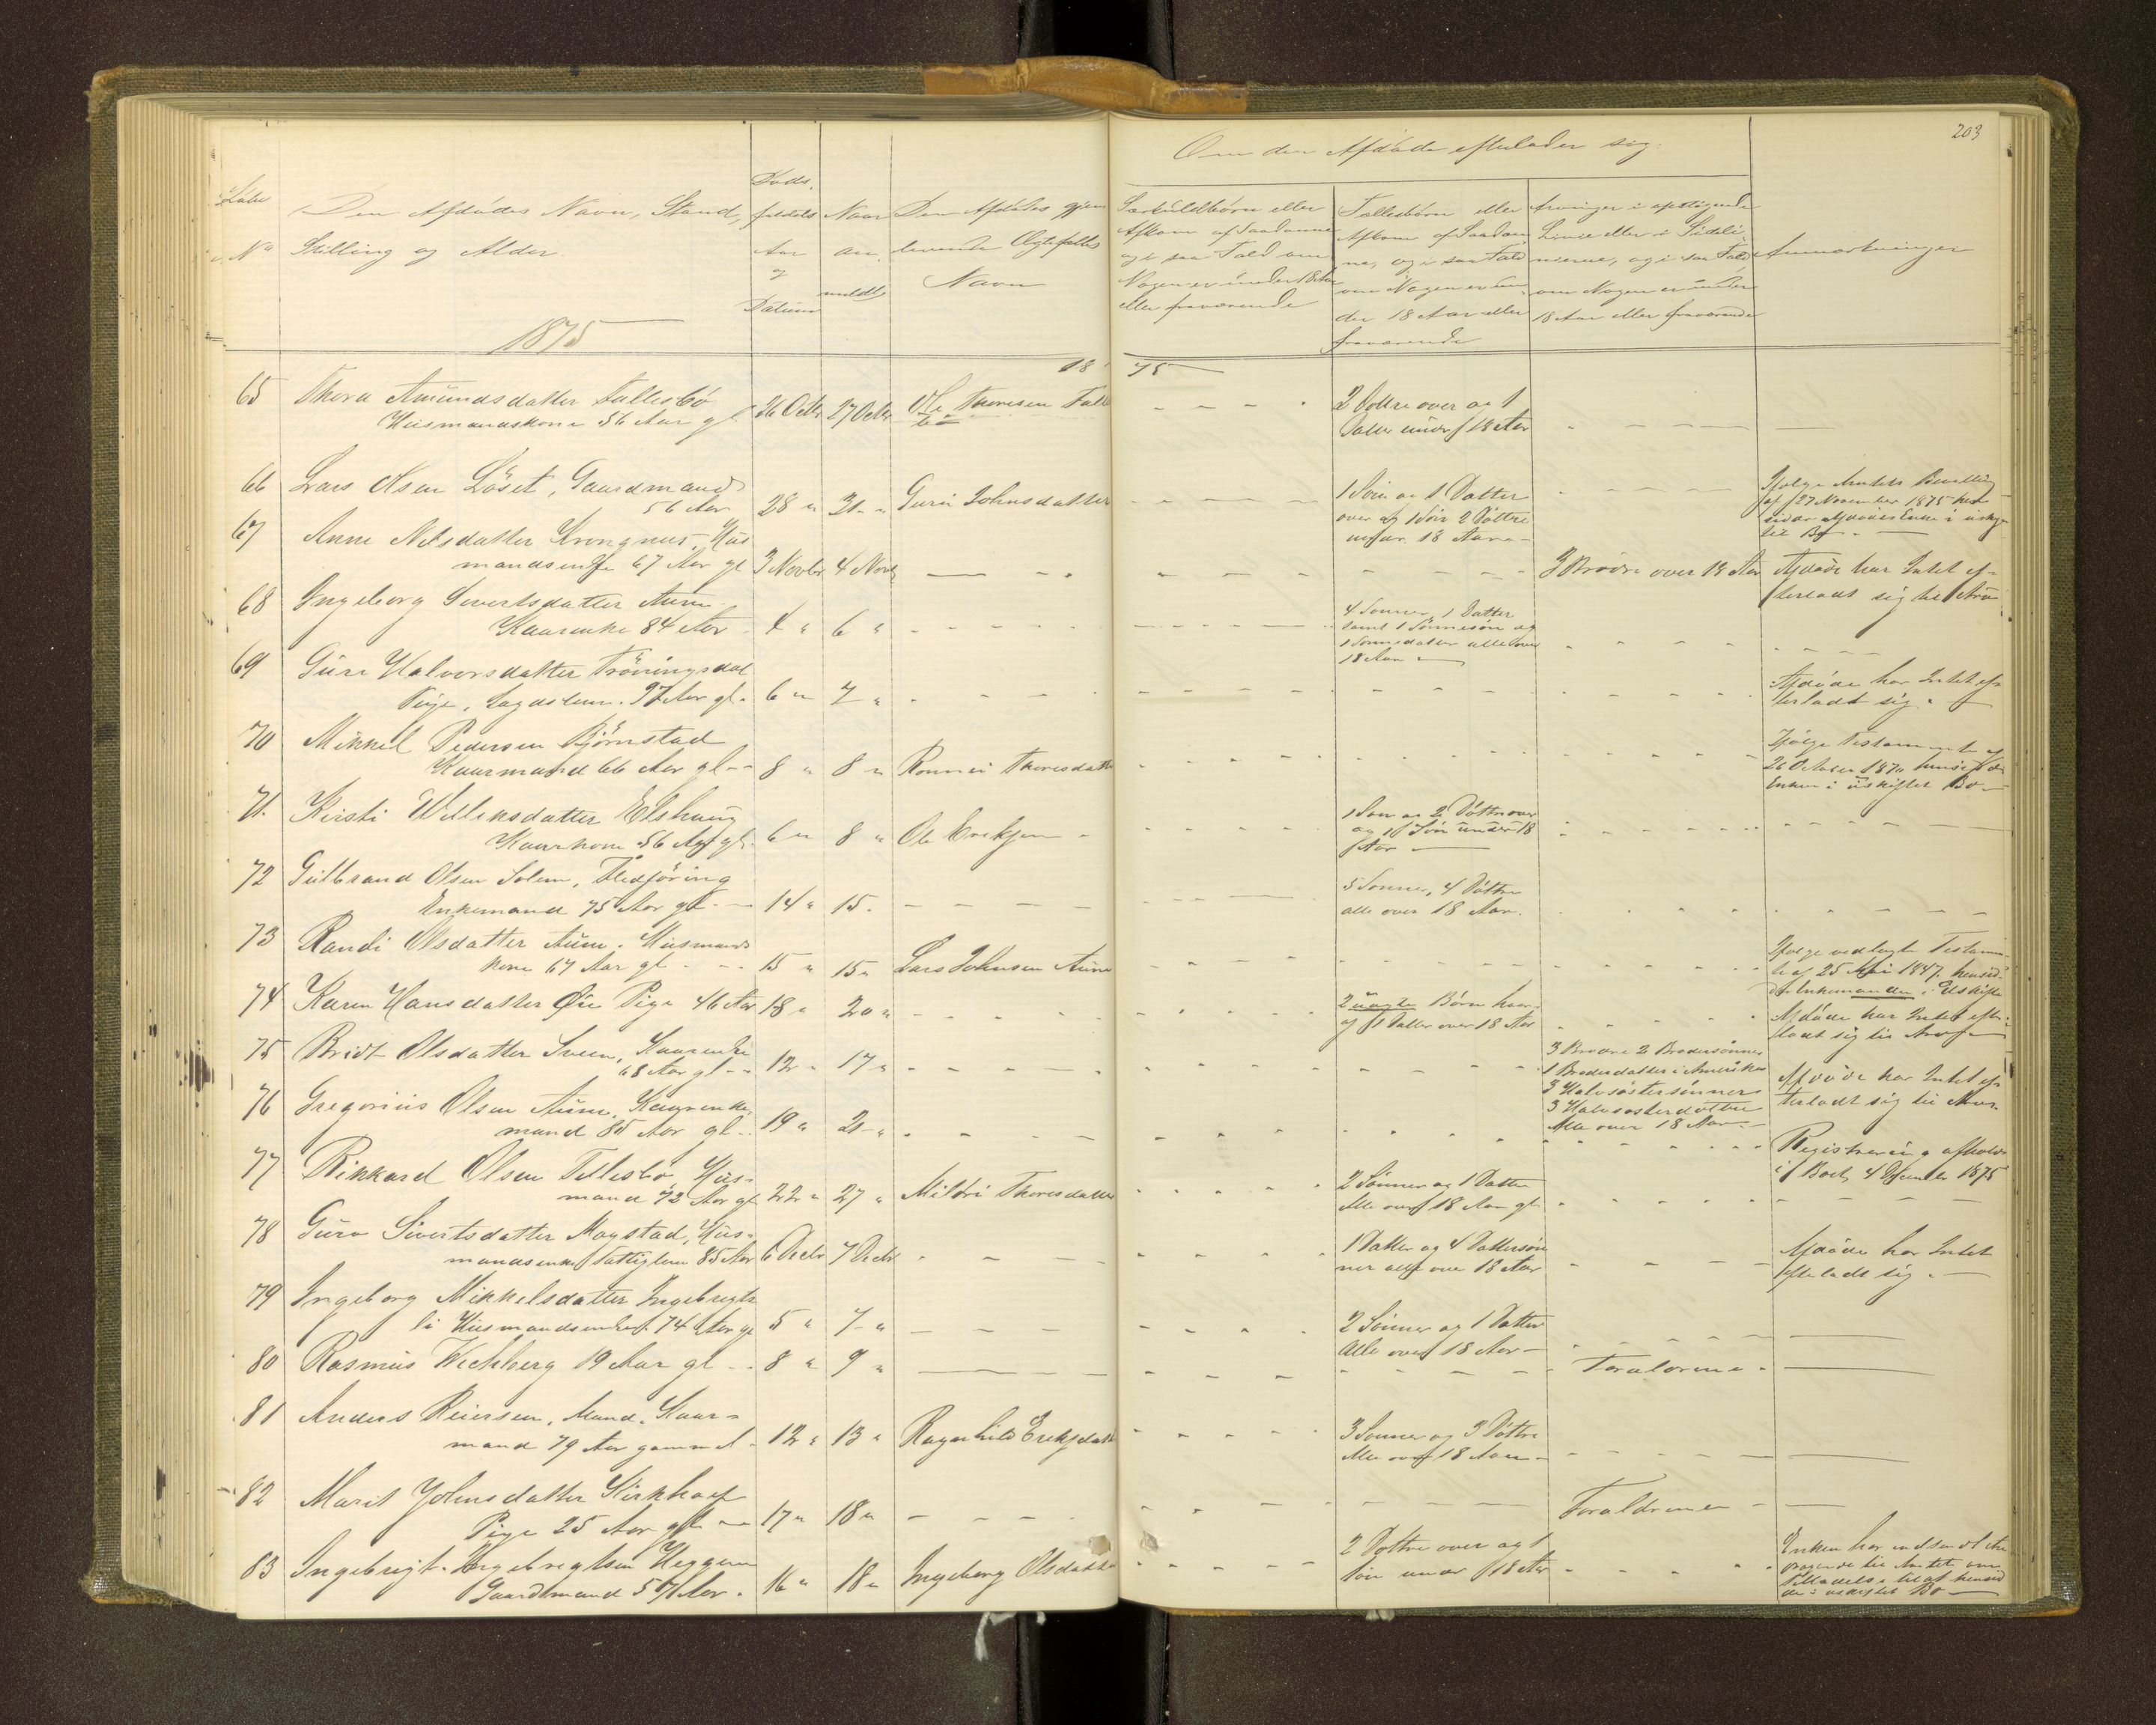 203
Om den Afdøde efterlader sig.
Løbe No
Den Afdødes Navn, Stand, Stilling og Alder.
Døds-faldets Aar og Datum
Naar an-meldt
Den Afdødes gjen-levende Ægtefælles Navn
Særkuldbørn eller Afkom af Saadanne og i saa Fald om Nogen er under 18 Aar eller fraværende
Fællesbørn eller Afkom af Saadan-ne, og i saa Fald om Nogen er un-der 18 Aar eller fraværende
Arvinger i opstigende Linie eller i Sideli-nierne, og i saa Fald om Nogen er under 18 Aar eller fraværende
Anmærkninger
1875
18 75
65 Thora Amundsdatter Tallesbö
Husmandskone 56 Aar gl 26 Octbr 27 Octbr Ole Thoresen Talles
bö
2 Døttre over og 1
Datter under 18 Aar
66 Lars Olsen Löset, Gaardmand
56 Aar 28 " 31 - " Guri Johnsdatter
1 Søn og 1 Datter
over og 1 Søn 2 Døttre
under 18 Aar
Ifølge Amtets Bevilling
af 27 November 1875 hen
sidder Afdødes Enke i uskif
tet Bo.
67 Anne Nilsdatter Krongnus, Hus
mandsenke 67 Aar gl 3 Novbr 4 Novb
3 Brødre over 18 Aar
Afdøde har Intet ef-
terladt sig til Arv
68 Ingeborg Sivertsdatter Aune
Kaarenke 84 Aar 4 " 6 "
4 Sønner, 1 Datter
samt 1 Sønnesøn og
1 Sønnedatter alle over
18 Aar
69 Guri Halvorsdatter Tröningsdal
Pige, Lægdslem. 97 Aar gl. 6 " 7 "
Afdøde har Intet ef-
terladt sig.
70 Mikkel Pedersen Björnstad
Kaarmand 66 Aar gl 8 " 8 " Ronnei Thoresdatter
Ifølge Testamente af
26 October 1870 hensidder
Enken i uskiftet Bo
71. Kirsti Williksdatter Elshaug
Kaarkone 56 Aar gl. 6 " 8 " Ole Eriksen
1 Søn og 2 Døttre over
og 1 Søn under 18
Aar
72 Gulbrand Olsen Solem, Fledföring
Enkemand 75 Aar gl 14 " 15.
5 Sønner, 4 Døttre
alle over 18 Aar.
73 Randi Olsdatter Aune. Husmands
kone 67 Aar gl 15 " 15 " Lars Johnsen Aune
Ifølge vedlagte Testamen
te af 25 Mai 1847. hensid
der Enkemanden i Uskifte
74 Karen Hansdatter Øie Pige 46 Aar 18 " 20 "
2 uægte Børn hvor-
af 1 Datter over 18 Aar
Afdøde har Intet efter-
ladt sig til Arv
75 Bridt Olsdatter Sveen, Kaarenke
68 Aar gl 12 " 17 "
3 Brødre 2 Brodersønner
1 Broderdatter i Amerika
3 Halvsøstersønner
3 Halvsøsterdøttre
Alle over 18 Aar
Afdøde har Intet ef-
terladt sig til Arv.
76 Gregorius Olsen Aune, Kaarenke
mand 85 Aar gl 19 " 21 - "
Registrering afholdt
i Boet 4 December 1875
77 Rikkard Olsen Tellesbö, Hus-
mand 73 Aar gl 22 " 27 " Mildri Thoresdatter
2 Sønner og 1 Datter
Alle over 18 Aar gl
78 Guro Sivertsdatter Mogstad, Hus-
mandsenke Fattiglem 85 Aar 6 Decbr 7 Decbr
1 Datter og 4 Dattersøn
ner alle over 18 Aar
Afdøde har Intet
efterladt sig.
79 Ingeborg Mikkelsdatter Ingebrigts
li Husmandsenke 74 Aar gl 5 " 7 - "
2 Sønner og 1 Datter
Alle over 18 Aar
80 Rasmus Wichberg 19 Aar gl 8 " 9 "
Forældrene
81 Anders Reiersen, Mand. Kaar-
mand 79 Aar gammel 12 " 13 " Ragnhild Eriksdatt
3 Sønner og 3 Døttre
Alle over 18 Aar
82 Marit Johnsdatter Kirkhaug
Pige 25 Aar gl 17 " 18 "
Forældrene
83 Ingebrigt Ingebrigtsen Heggem
Gaardmand 5 Aar. 16 " 18 " Ingeborg Olsdatter
2 Døttre over og 1
Søn under 18 Aar
Enken har indsendt An
søgende til Amtet om
Tilladelse til at hensid
de i uskiftet Bo